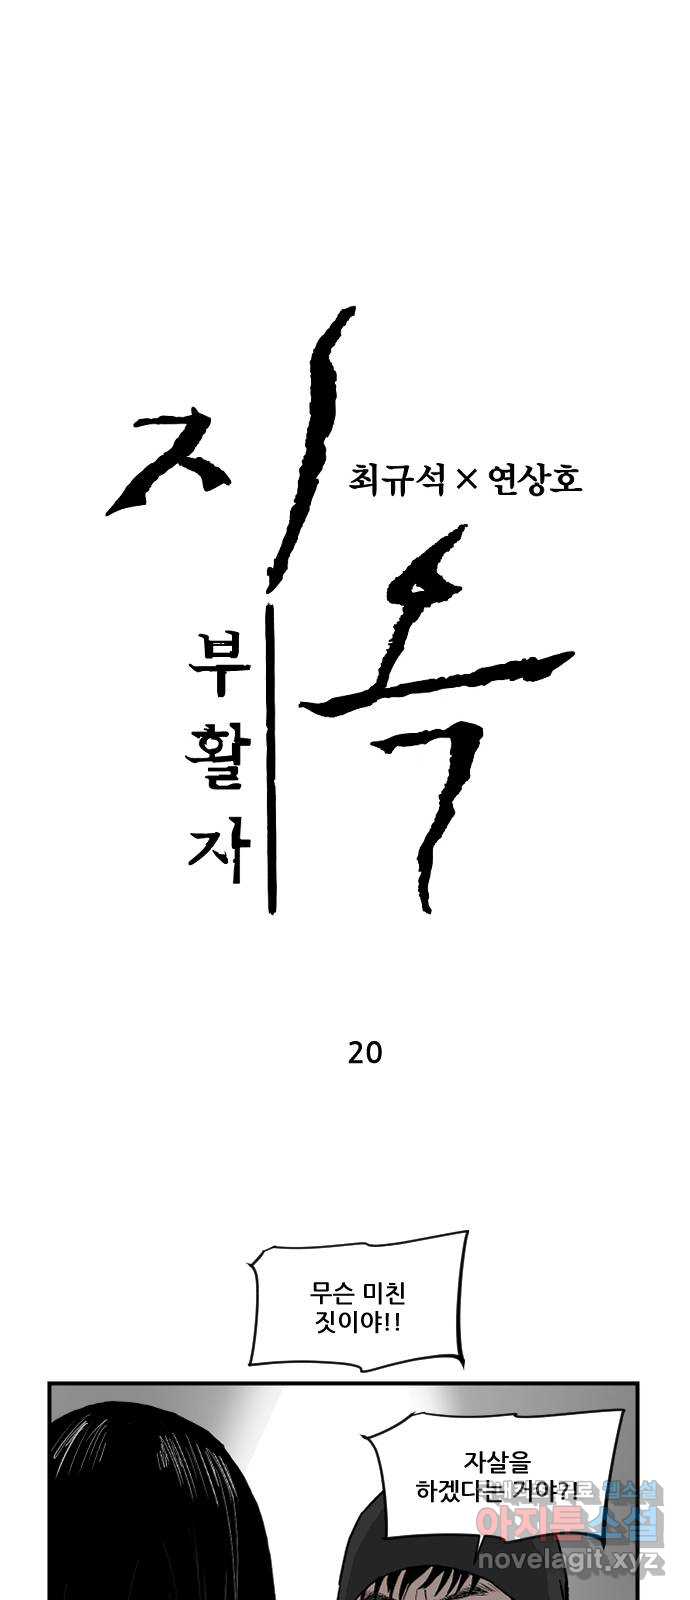 지옥
최규석 × 연상호
부활자
20
무슨 미친
짓이야!!
자살을
하겠다는 거야?!
아지툰소설
novelagit.xyz